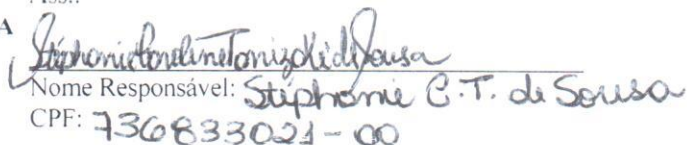 A Stéphanie Caroline Tomizoki de Sousa
Nome Responsável: Stéphanie C. T. de Sousa
CPF: 736833021-00